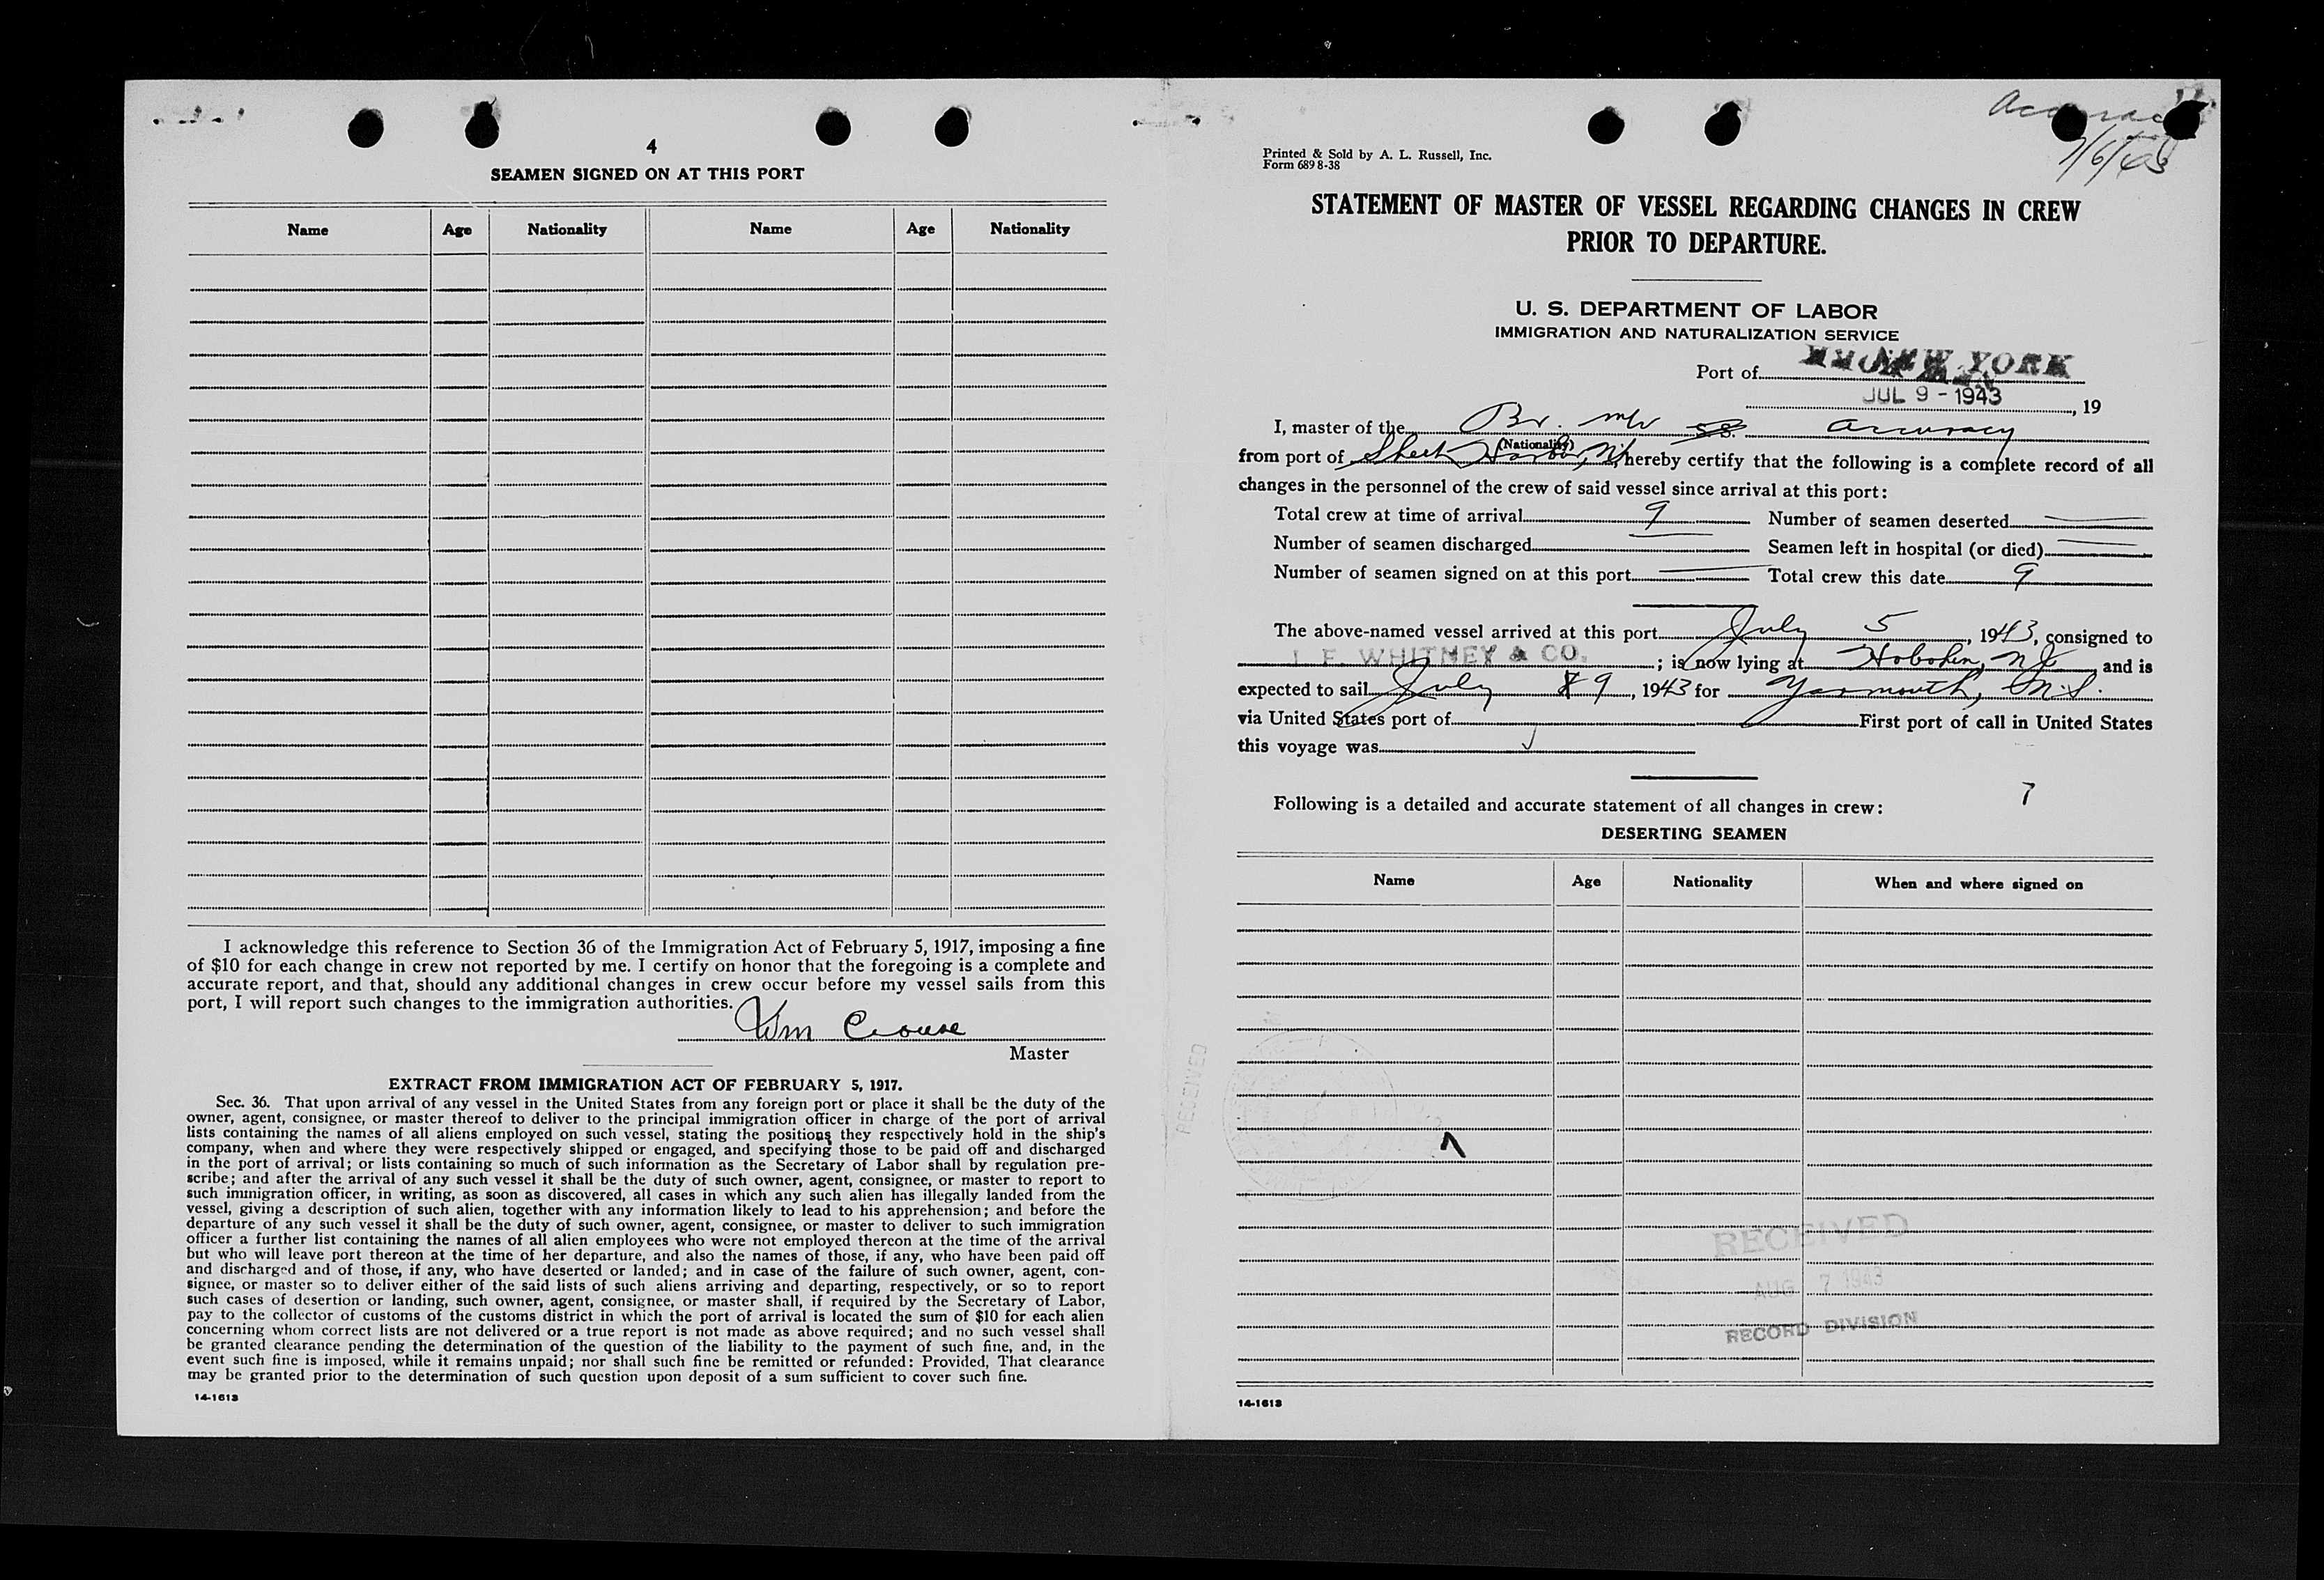 4
SEAMEN SIGNED ON AT THIS PORT
Name Age Nationality Name Age Nationality
I acknowledge this reference to Section 36 of the Immigration Act of February 5, 1917, imposing a fine
of $10 for each change in crew not reported by me. I certify on honor that the foregoing is a complete and
accurate report, and that, should any additional changes in crew occur before my vessel sails from this
port, I will report such changes to the immigration authorities.
Wm Crouse
Master
EXTRACT FROM IMMIGRATION ACT OF FEBRUARY 5, 1917.
Sec. 36. That upon arrival of any vessel in the United States from any foreign port or place it shall be the duty of the
owner, agent, consignee, or master thereof to deliver to the principal immigration officer in charge of the port of arrival
lists containing the names of all aliens employed on such vessel, stating the positions they respectively hold in the ship's
company, when and where they were respectively shipped or engaged, and specifying those to be paid off and discharged
in the port of arrival; or lists containing so much of such information as the Secretary of Labor shall by regulation pre-
scribe; and after the arrival of any such vessel it shall be the duty of such owner, agent, consignee, or master to report to
such immigration officer, in writing, as soon as discovered, all cases in which any such alien has illegally landed from the
vessel, giving a description of such alien, together with any information likely to lead to his apprehension; and before the
departure of any such vessel it shall be the duty of such owner, agent, consignee, or master to deliver to such immigration
officer a further list containing the names of all alien employees who were not employed thereon at the time of the arrival
but who will leave port thereon at the time of her departure, and also the names of those, if any, who have been paid off
and discharged and of those, if any, who have deserted or landed; and in case of the failure of such owner, agent, con-
signee, or master so to deliver either of the said lists of such aliens arriving and departing, respectively, or so to report
such cases of desertion or landing, such owner, agent, consignee, or master shall, if required by the Secretary of Labor,
pay to the collector of customs of the customs district in which the port of arrival is located the sum of $10 for each alien
concerning whom correct lists are not delivered or a true report is not made as above required; and no such vessel shall
be granted clearance pending the determination of the question of the liability to the payment of such fine, and, in the
event such fine is imposed, while it remains unpaid; nor shall such fine be remitted or refunded: Provided, That clearance
may be granted prior to the determination of such question upon deposit of a sum sufficient to cover such fine.
14-1613
Printed & Sold by A. L. Russell, Inc.
Form 689 8-38
STATEMENT OF MASTER OF VESSEL REGARDING CHANGES IN CREW
PRIOR TO DEPARTURE.
U. S. DEPARTMENT OF LABOR
IMMIGRATION AND NATURALIZATION SERVICE
Port of NEW YORK
JUL 9 - 1943, 19
I, master of the Br. M/v S.S. Accuracy
(Nationality)
from port of Sheet Harbor, N.S., hereby certify that the following is a complete record of all
changes in the personnel of the crew of said vessel since arrival at this port:
Total crew at time of arrival 9 Number of seamen deserted
Number of seamen discharged Seamen left in hospital (or died)
Number of seamen signed on at this port Total crew this date 9
The above-named vessel arrived at this port July 5, 1943, consigned to
J. F. WHITNEY & CO. ; is now lying at Hoboken, NJ and is
expected to sail July 8 9, 1943 for Yarmouth, N.S.
via United States port of First port of call in United States
this voyage was
Following is a detailed and accurate statement of all changes in crew: 7
DESERTING SEAMEN
Name Age Nationality When and where signed on
RECEIVED
RECEIVED
AUG 7 1943
RECORD DIVISION
14-1613